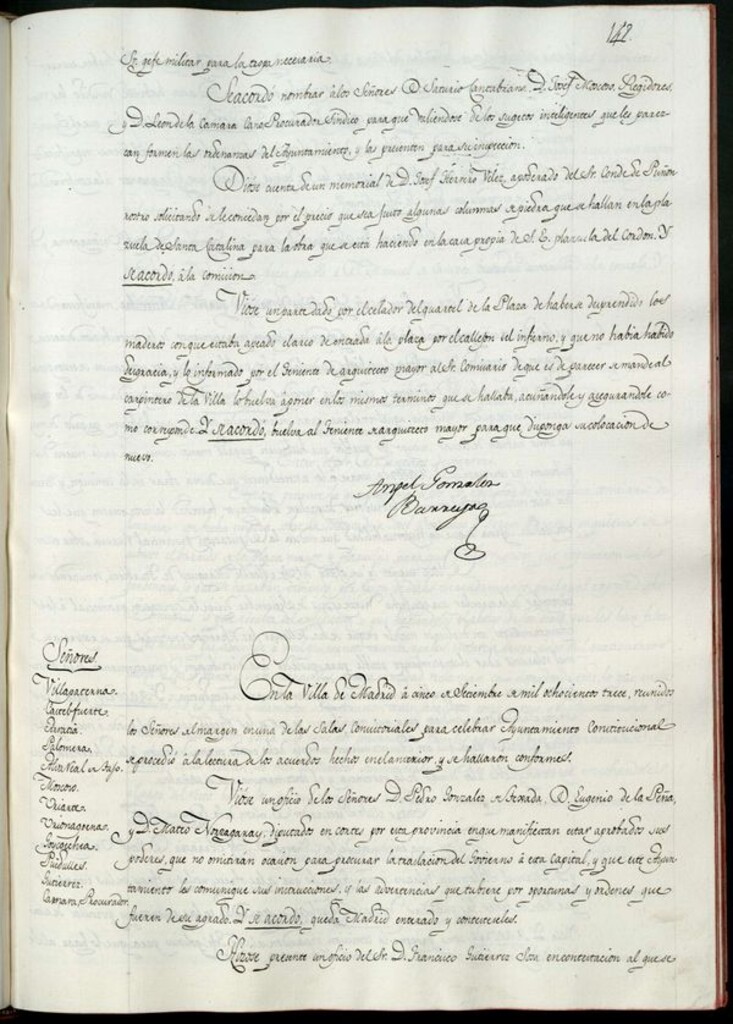 142.
Sr. gefe militar para la tropa necesaria.
Se acordó nombrar á los Señores D. Saturio Cantabrana, D. Josef Moscoso, Regidores,
y D. Leon de la Camara Cano, Procurador Sindico para que valiendose de los sugetos inteligentes que les parez-
can formen las ordenanzas del Ayuntamiento, y las presenten para su inspeccion.
Diose cuenta de un memorial de D. Josef Herrero Velez, apoderado del Sr. Conde de Puñon
rostro solicitando se le concedan por el precio que sea justo algunas columnas de piedra que se hallan en la pla-
zuela de Santa Catalina para la obra que se está haciendo en la casa propia de S. E. plazuela del Cordon. Y
se acordó, á la comision.
Viose un parte dado por el celador del quartel de la Plaza de haberse desprendido los
maderos con que estaba apeado el arco de entrada á la plaza por el callejon del infierno, y que no habia habido
desgracia, y lo informado por el Teniente de arquitecto mayor al Sr. Comisario de que es de parecer se mande al
carpintero de la Villa lo buelva á poner en los mismos terminos que se hallaba, acuñandole y asegurandole co-
mo corresponde. Y se acordó, buelva al Teniente de arquitecto mayor para que disponga su colocacion de
nuevo.
Angel Gonzalez
Barreyro
Señores
Villapaterna.
Castelfuerte.
Palomera.
Moscoso.
Uriarte.
Goycoechea.
Gutierrez.
Procurador.
En la Villa de Madrid á cinco de Setiembre de mil ochocientos trece, reunidos
los Señores del margen en una de las Salas Consistoriales para celebrar Ayuntamiento Constitucional
se procedió á la lectura de los acuerdos hechos en el anterior, y se hallaron conformes.
Viose un oficio de los Señores D. Pedro Gonzalez de Tejada, D. Eugenio de la Peña,
y D. Mateo Norzagaray, diputados en cortes por esta provincia en que manifiestan estar aprobados sus
poderes, que no omitiran ocasion para procurar la traslacion del Govierno á esta Capital, y que este Ayun-
tamiento les comunique sus instrucciones, y las advertencias que tubiere por oportunas y ordenes que
fueren de su agrado. Y se acordó, queda Madrid enterado y conteseseles.
Hizose presente un oficio del Sr. D. Francisco Gutierrez Sosa en contestacion al que se